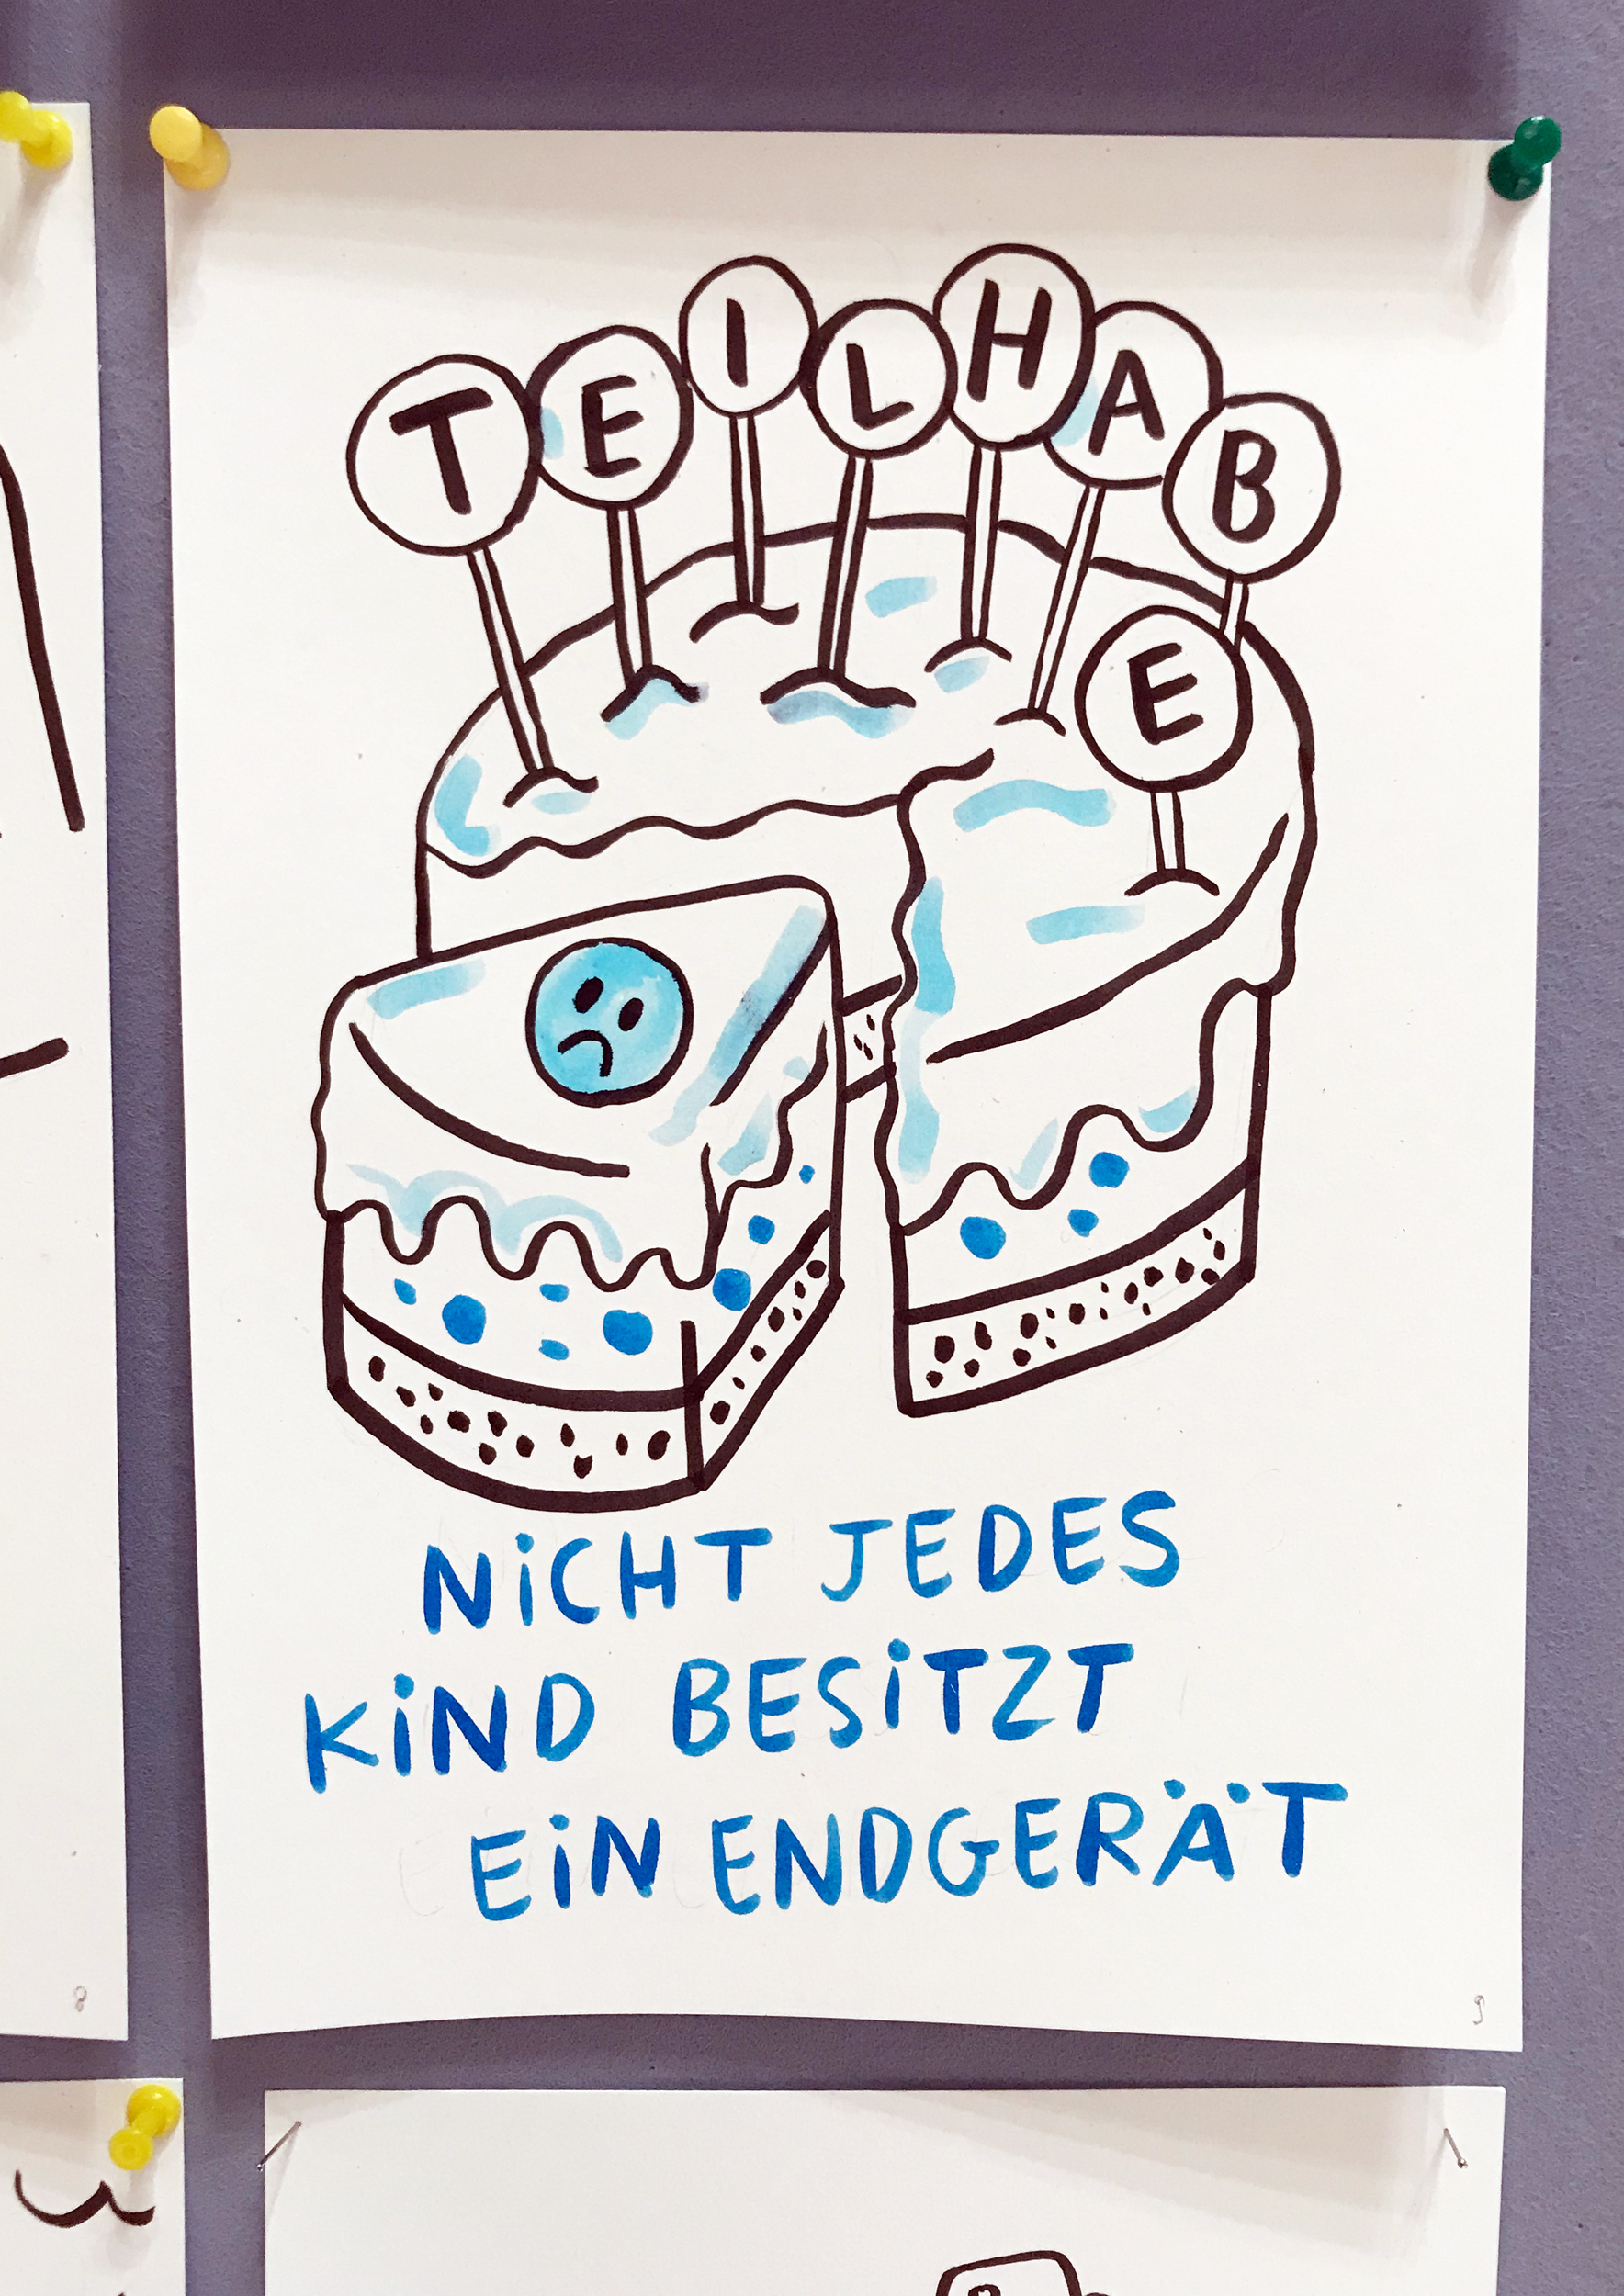 TEILHABE
NICHT JEDES
KIND BESITZT
EIN ENDGERÄT
8
9